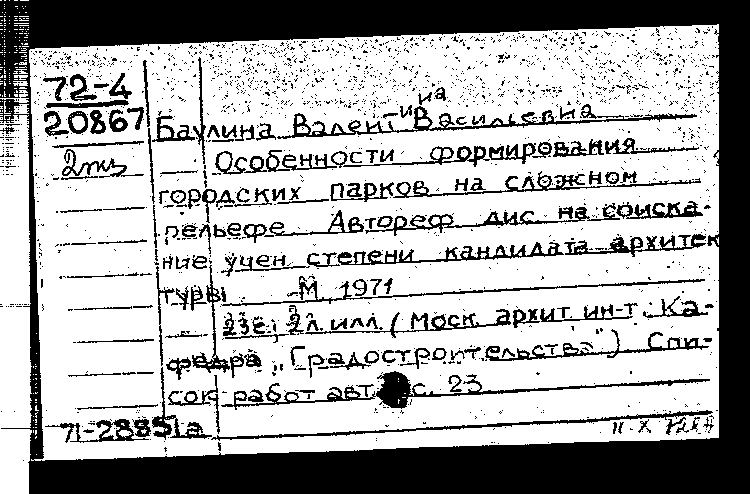 72-4
20867
2экз
Баулина Валентина Васильевна
Особенности формирования
городских парков на сложном
рельефе. Автореф. дис. на соиска-
ние учен. степени кандидата архитек
туры. М., 1971
23с.; 2л. илл. (Моск. архит. ин-т. Ка-
федра "Градостроительства") Спи-
сок работ авт. с. 23
71-28851а
11.X